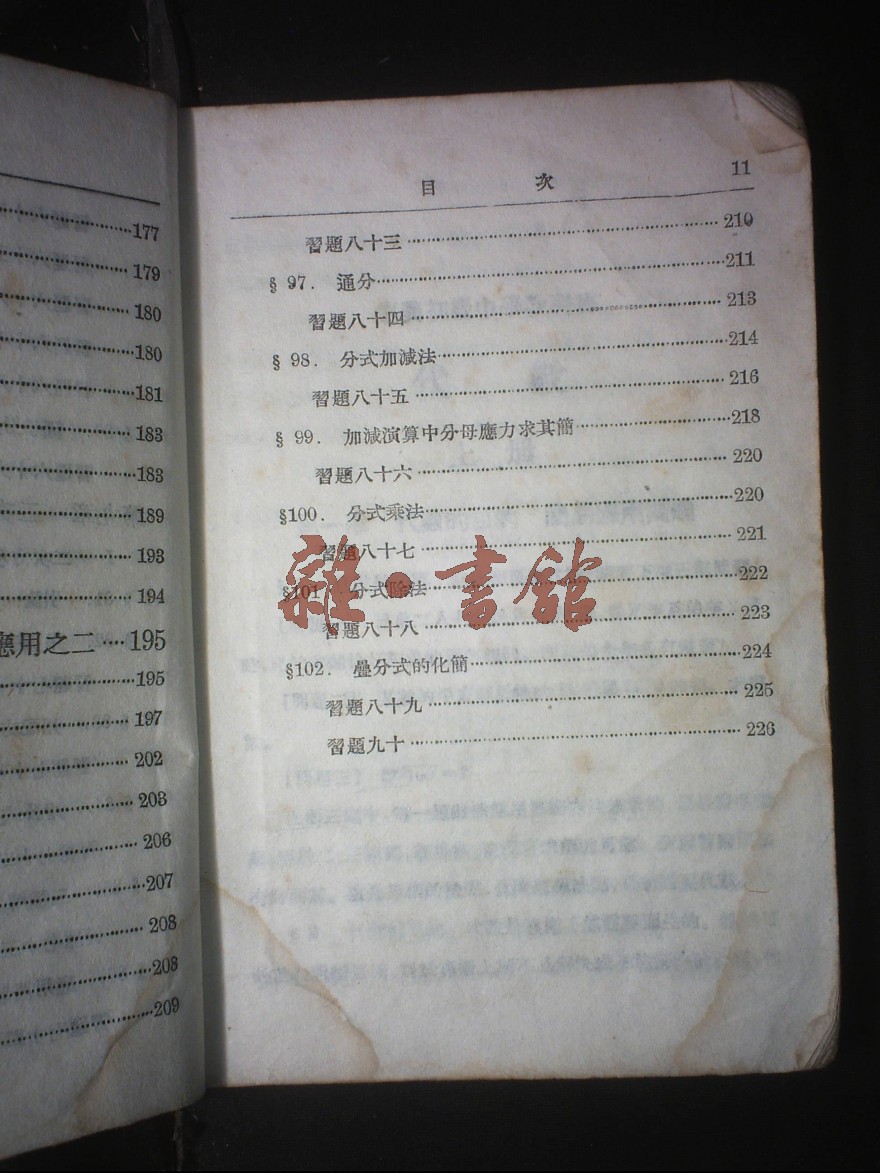 177
179
180
180
181
183
183
189
193
194
應用之二····195
195
197
202
203
206
207
208
208
209
目 次 11
習題八十三 210
§ 97. 通分 211
習題八十四 213
§ 98. 分式加減法 214
習題八十五 216
§ 99. 加減演算中分母應力求其簡 218
習題八十六 220
§100. 分式乘法 220
習題八十七 221
§101. 分式除法 222
習題八十八 223
§102. 疊分式的化簡 224
習題八十九 225
習題九十 226
雜·書館